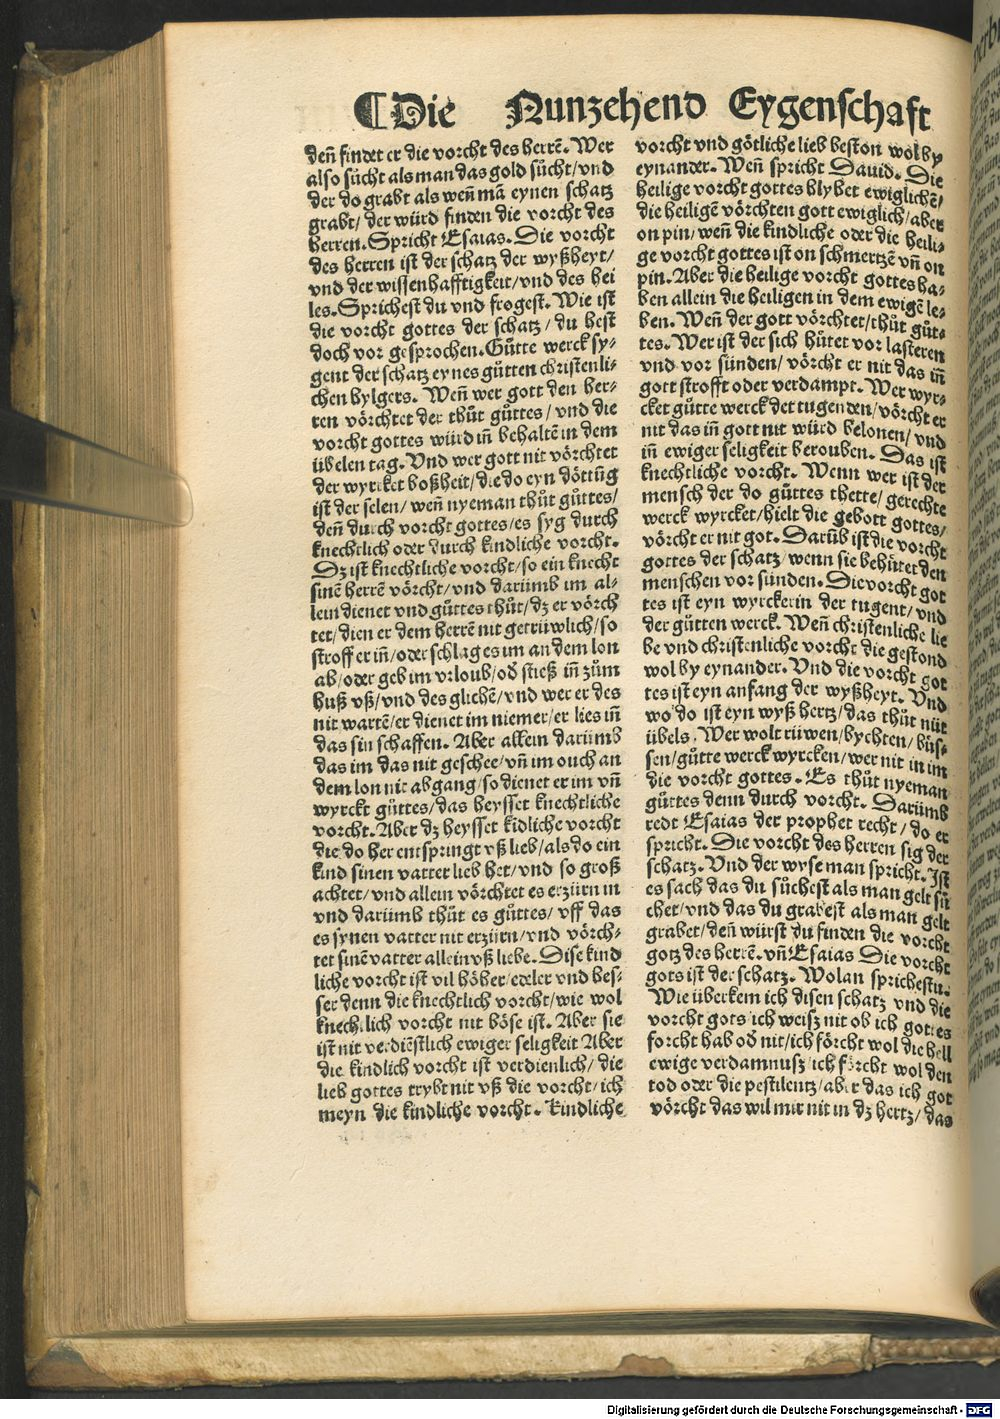 ¶Die Nunzehend Eygenschaft
deñ findet er die vorcht des herrē. Wer
also sůcht als man das gold sůcht/vnd
der do grabt als weñ mā eynen schatz
grabt/ der würd finden die vorcht des
herren. Spricht Esaias. Die vorcht
des herren ist der schatz der wyßheyt/
vnd der wissenhafftigkeit/vnd des hei
les. Sprichest du vnd frogest. Wie ist
die vorcht gottes der schatz/ du hest
doch vor gesprochen. Gůtte werck sy⸗
gent der schatz eynes gůtten christenli⸗
chen bylgers. Weñ wer gott den her⸗
ren vörchtet der thůt gůttes/ vnd die
vorcht gottes würd iñ behaltē in dem
übelen tag. Vnd wer gott nit vörchtet
der wyrcket boßheit/ die do eyn döttūg
ist der selen/ weñ nyeman thůt gůttes/
deñ durch vorcht gottes/es syg durch
knechtlich oder durch kindliche vorcht.
Dz ist knechtliche vorcht/so ein knecht
sinē herrē vörcht/vnd darümb im al⸗
lein dienet vnd gůttes thůt/dz er vörch
tet/dien er dem herrē nit getrüwlich/so
stroff er iñ/oder schlag es im an dem lon
ab/oder geb im vrloub/od̄ stieß iñ zům
huß vß/vnd des glichē/vnd wer er des
nit wartē/er dienet im niemer/er lies iñ
das sin schaffen. Aber allein darümb
das im das nit geschee/vñ im ouch an
dem lon nit abgang/so dienet er im vñ
wyrckt gůttes/das heysset knechtliche
vorcht. Aber dz heysset kīdliche vorcht
die do her entspringt vß lieb/als do ein
kind sinen vatter lieb het/vnd so groß
achtet/vnd allein vörchtet es erzürn in
vnd darümb thůt es gůttes/ vff das
es synen vatter nit erzürn/vnd vörch⸗
tet sinē vatter allein vß liebe. Dise kind
liche vorcht ist vil höher/edeler vnd bes⸗
ser denn die knechtlich vorcht/wie wol
knechtlich vorcht nit böse ist. Aber sie
ist nit verdiēstlich ewiger seligkeit Aber
die kindlich vorcht ist verdienlich/ die
lieb gottes trybt nit vß die vorcht/ich
meyn die kindliche vorcht. Kindliche
vorcht vnd götliche lieb beston wol by
eynander. Weñ spricht Dauid. Die
heilige vorcht gottes blybet ewiglichē/
die heiligē vörchten gott ewiglich/aber
on pin/ weñ die kindliche oder die heili⸗
ge vorcht gottes ist on schmertzē vñ on
pin. Aber die heilige vorcht gottes ha⸗
ben allein die heiligen in dem ewigē le⸗
ben. Weñ der gott vörchtet/thůt gůt⸗
tes. Wer ist der sich hütet vor lasteren
vnd vor sünden/ vörcht er nit das iñ
gott strofft oder verdampt. Wer wyr⸗
cket gůtte werck der tugenden/vörcht er
nit das iñ gott nit würd belonen/ vnd
iñ ewiger seligkeit berouben. Das ist
knechtliche vorcht. Wenn wer ist der
mensch der do gůttes thette/ gerechte
werck wyrcket/hielt die gebott gottes/
vörcht er nit got. Darūb ist die vorcht
gottes der schatz/wenn sie behütet den
menschen vor sünden. Die vorcht got
tes ist eyn wyrckerin der tugent/ vnd
der gůtten werck. Weñ christenliche lie
be vnd christenliche vorcht die gestond
wol by eynander. Vnd die vorcht got
tes ist eyn anfang der wyßheyt. Vnd
wo do ist eyn wyß hertz/das thůt nüt
übels. Wer wolt rüwen/bychten/büs⸗
sen/gůtte werck wyrcken/wer nit in im
die vorcht gottes. Es thůt nyeman
gůttes denn durch vorcht. Darümb
redt Esaias der prophet recht/ do er
spricht. Die vorcht des herren sig der
schatz. Vnd der wyse man spricht. Ist
es sach das du sůchest als man gelt sů
chet/vnd das du grabest als man gelt
grabet/deñ würst du finden die vorcht
gotz des herrē. vñ Esaias Die vorcht
gots ist der schatz. Wolan sprichestu.
Wie überkem ich disen schatz vnd die
vorcht gots ich weisz nit ob ich gottes
forcht hab od̄ nit/ich förcht wol die hell
ewige verdamnusz ich förcht wol den
tod oder die pestilentz/aber das ich got
vörcht das wil mir nit in dz hertz/das
Digitalisierung gefördert durch die Deutsche Forschungsgemeinschaft - DFG